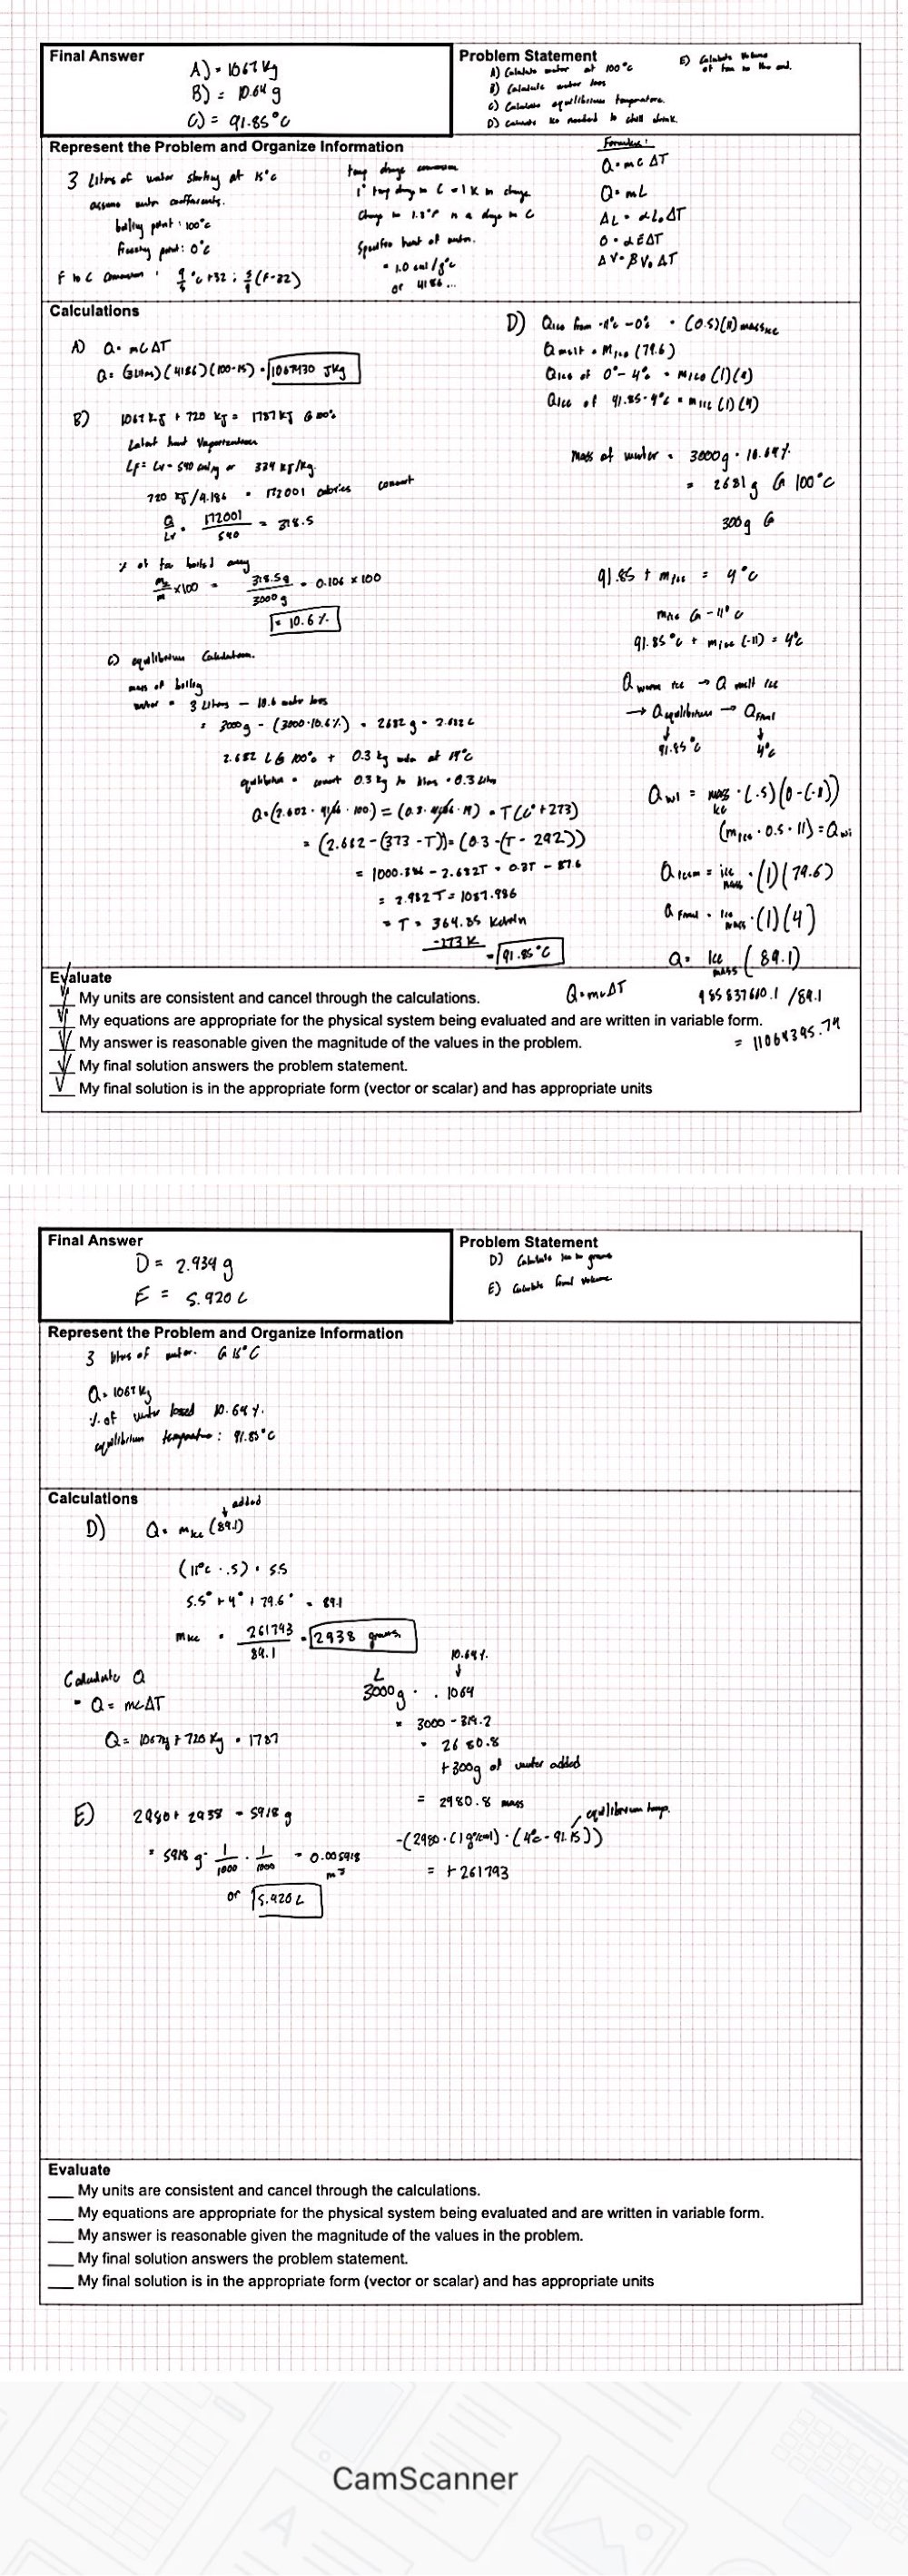 Final Answer
A) = 1067 Kg
B) = 10.64 g
C) = 91.85°C
Problem Statement
A) Calculate water at 100°C
B) Calculate water loss
C) Calculate equilibrium temperature.
D) Calculate ice needed to chill drink.
E) Calculate Volume
of tea in the end.
Represent the Problem and Organize Information
3 Liters of water starting at 15°C
assume water coefficients.
boiling point: 100°C
freezing point: 0°C
F to C conversion : 9/5 °C +32 ; 5/9 (F-32)
temp change conversion
1° temp change in C = 1 K in change
Change in 1.8°F is a change in C
Specific heat of water.
= 1.0 cal/g°C
or 4186...
Formulas:
Q = mCΔT
Q = mL
ΔL = αL₀ΔT
O = αEΔT
ΔV = βV₀ΔT
Calculations
A) Q = mCΔT
Q = (3 Liters)(4186)(100-15) = 1067430 JKg
B) 1067 KJ + 720 KJ = 1787 KJ @ 100°
Latent heat Vaporization
Lf = Lv = 540 cal/g or 334 KJ/Kg.
720 KJ/4.186 = 172001 calories convert
Q/Lv = 172001/540 = 318.5
% of tea boiled away
×100 = 318.5g/3000g = 0.106 × 100
= 10.6 %
C) equilibrium Calculation.
mass of boiling
water = 3 Liters - 10.6 water loss
= 3000g - (3000·10.6%) = 2682 g = 2.682 L
2.682 L @ 100° + 0.3 kg water at 19°C
equilibrium = convert 0.3 kg to liters = 0.3 Liters
Q = (2.682 · 4186 · 100) = (0.3 · 4186 · 19) = T(C° + 273)
= (2.682 - (373 - T)) = (0.3 - (T - 292))
= 1000.386 - 2.682T = 0.3T - 87.6
= 2.982 T = 1087.986
= T = 364.85 Kelvin
-273 K
= 91.85°C
D) Qice from -11°C - 0°C = (0.5)(11) mass ice
Qmelt = Mice (79.6)
Qice of 0° - 4°C = Mice (1)(4)
Qice of 91.85 - 4°C = Mice (1)(4)
Mass of water = 3000g · 10.64%
= 2681 g @ 100°C
300g @
91.85 + Mice = 4°C
Mice @ -11° C
91.85°C + Mice (-11) = 4°C
Q warm ice → Q melt ice
→ Qequilibrium → Qfinal
91.85°C 4°C
Qwi = mass ice · (.5)(0-(-11))
(mice · 0.5 · 11) = Qwi
= ice mass · (1)(79.6)
QFinal = ice mass · (1)(4)
Q = Ice mass (89.1)
Evaluate
My units are consistent and cancel through the calculations.
Q = mcΔT
985837610.1 /89.1
My equations are appropriate for the physical system being evaluated and are written in variable form.
My answer is reasonable given the magnitude of the values in the problem.
= 11064395.74
My final solution answers the problem statement.
My final solution is in the appropriate form (vector or scalar) and has appropriate units
Final Answer
D = 2.934 g
E = 5.920 L
Problem Statement
D) Calculate ice in grams
E) Calculate final volume
Represent the Problem and Organize Information
3 liters of water @ 15°C
Q = 1067 Kg
% of water loss 10.64%
equilibrium temperature: 91.85°C
Calculations
added
D) Q = mice (89.1)
(11°C · .5) = 5.5
5.5° + 4° + 79.6° = 89.1
mice = 261793/89.1 = 2938 grams
Calculate Q
= Q = mcΔT
Q = 1067Kg + 720 Kg = 1787
10.64%
3000g · .1064
= 3000 - 319.2
= 2680.8
+300g of water added
= 2980.8 mass
equilibrium temp.
-(2980 · (1 g°/cal) · (4°C - 91.85))
= +261793
E) 2980 + 2938 = 5918 g
= 5918 g · 1/1000 · 1/1000 = 0.005918
m³
or 5.920 L
Evaluate
My units are consistent and cancel through the calculations.
My equations are appropriate for the physical system being evaluated and are written in variable form.
My answer is reasonable given the magnitude of the values in the problem.
My final solution answers the problem statement.
My final solution is in the appropriate form (vector or scalar) and has appropriate units
CamScanner